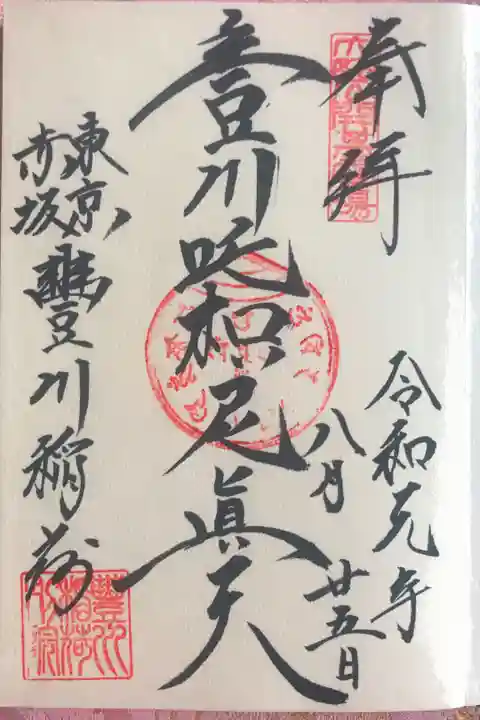 奉拝
令和元年
八月
廿五日
豊川吒枳尼眞天
東京
赤坂
豐川稲荷